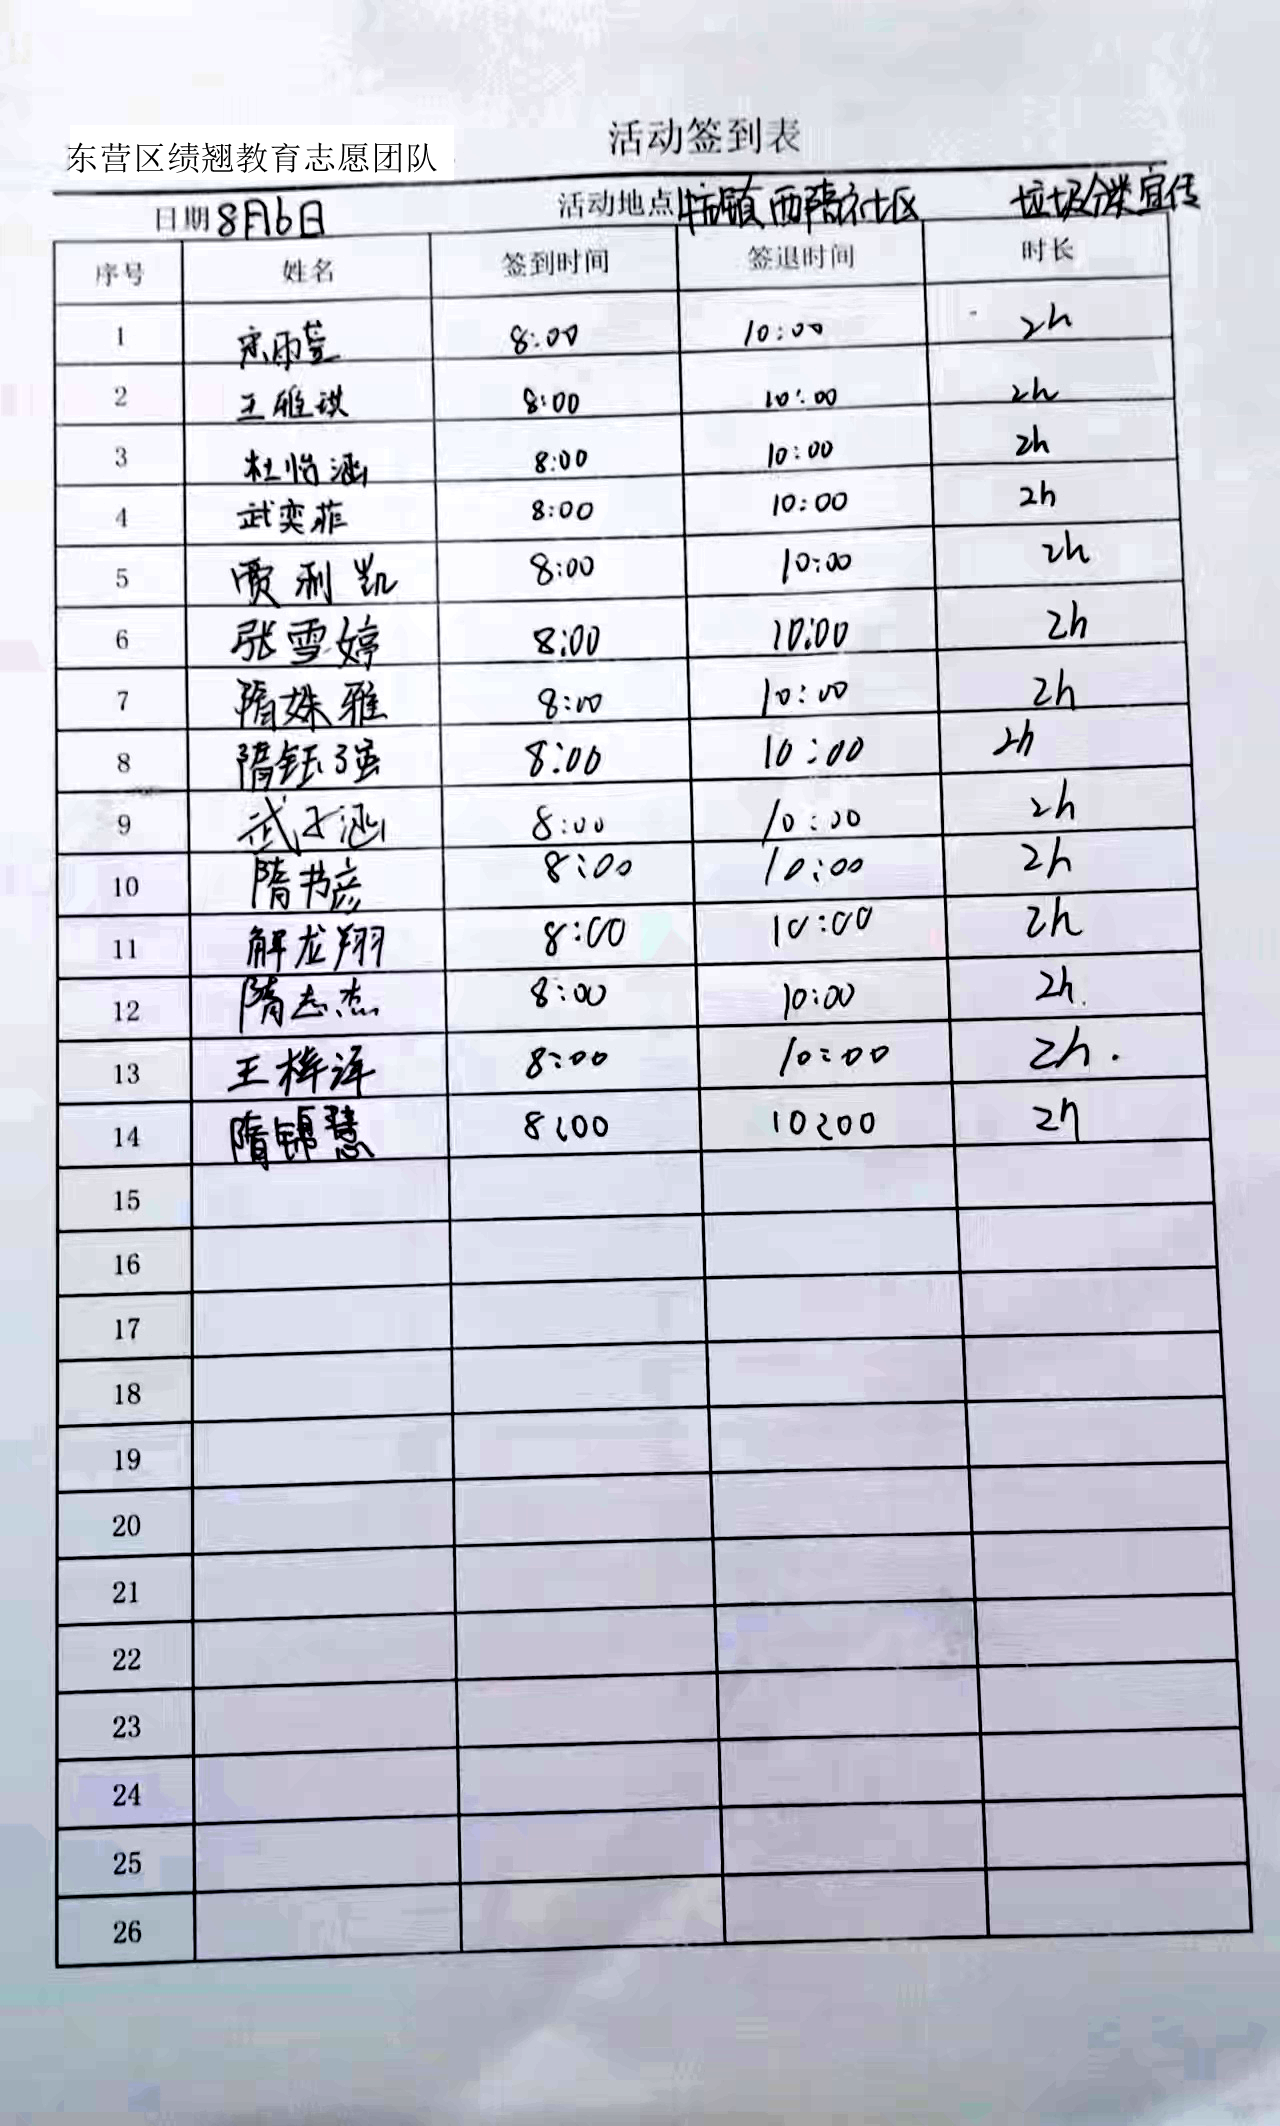 活动签到表
东营区绩翘教育志愿团队
日期 8月6日 活动地点 牛庄镇西隋社区 垃圾分类宣传
序号 姓名 签到时间 签退时间 时长
1 宋雨萱 8:00 10:00 2h
2 王雅淇 8:00 10:00 2h
3 杜怡涵 8:00 10:00 2h
4 武奕菲 8:00 10:00 2h
5 贾利凯 8:00 10:00 2h
6 张雪婷 8:00 10:00 2h
7 隋姝雅 8:00 10:00 2h
8 隋钰强 8:00 10:00 2h
9 武子涵 8:00 10:00 2h
10 隋书彦 8:00 10:00 2h
11 解龙翔 8:00 10:00 2h
12 隋志杰 8:00 10:00 2h.
13 王梓泽 8:00 10:00 2h.
14 隋锦慧 8:00 10:00 2h
15
16
17
18
19
20
21
22
23
24
25
26